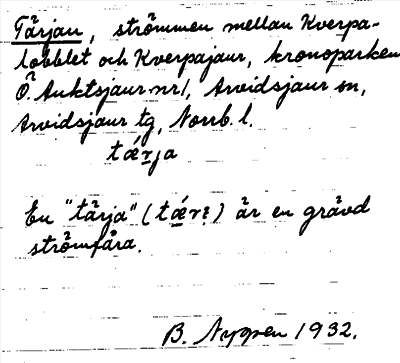 Tärjan, strömmen mellan Kverpa-
lobblet och Kverpajaur, kronoparken
Ö. Auktsjaur nr 1, Arvidsjaur sn,
Arvidsjaur tg, Norrb. l.
tǽrja
En "tärja" (tǽrı̣) är en grävd
strömfåra.
B. Nygren 1932.